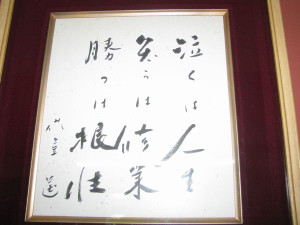 泣くは人生
笑うは修業
勝つは根性